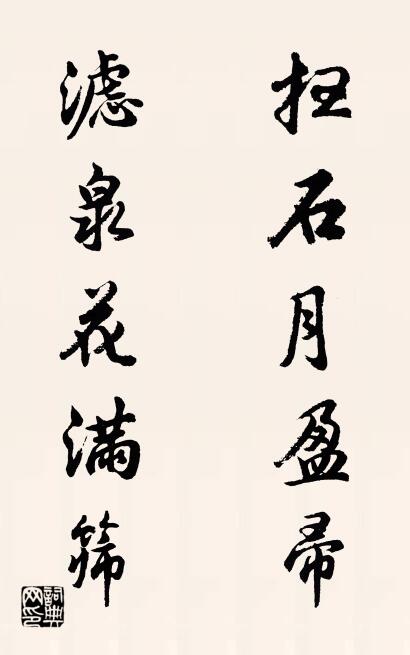 扫石月盈帚
滤泉花满筛
詞典网印